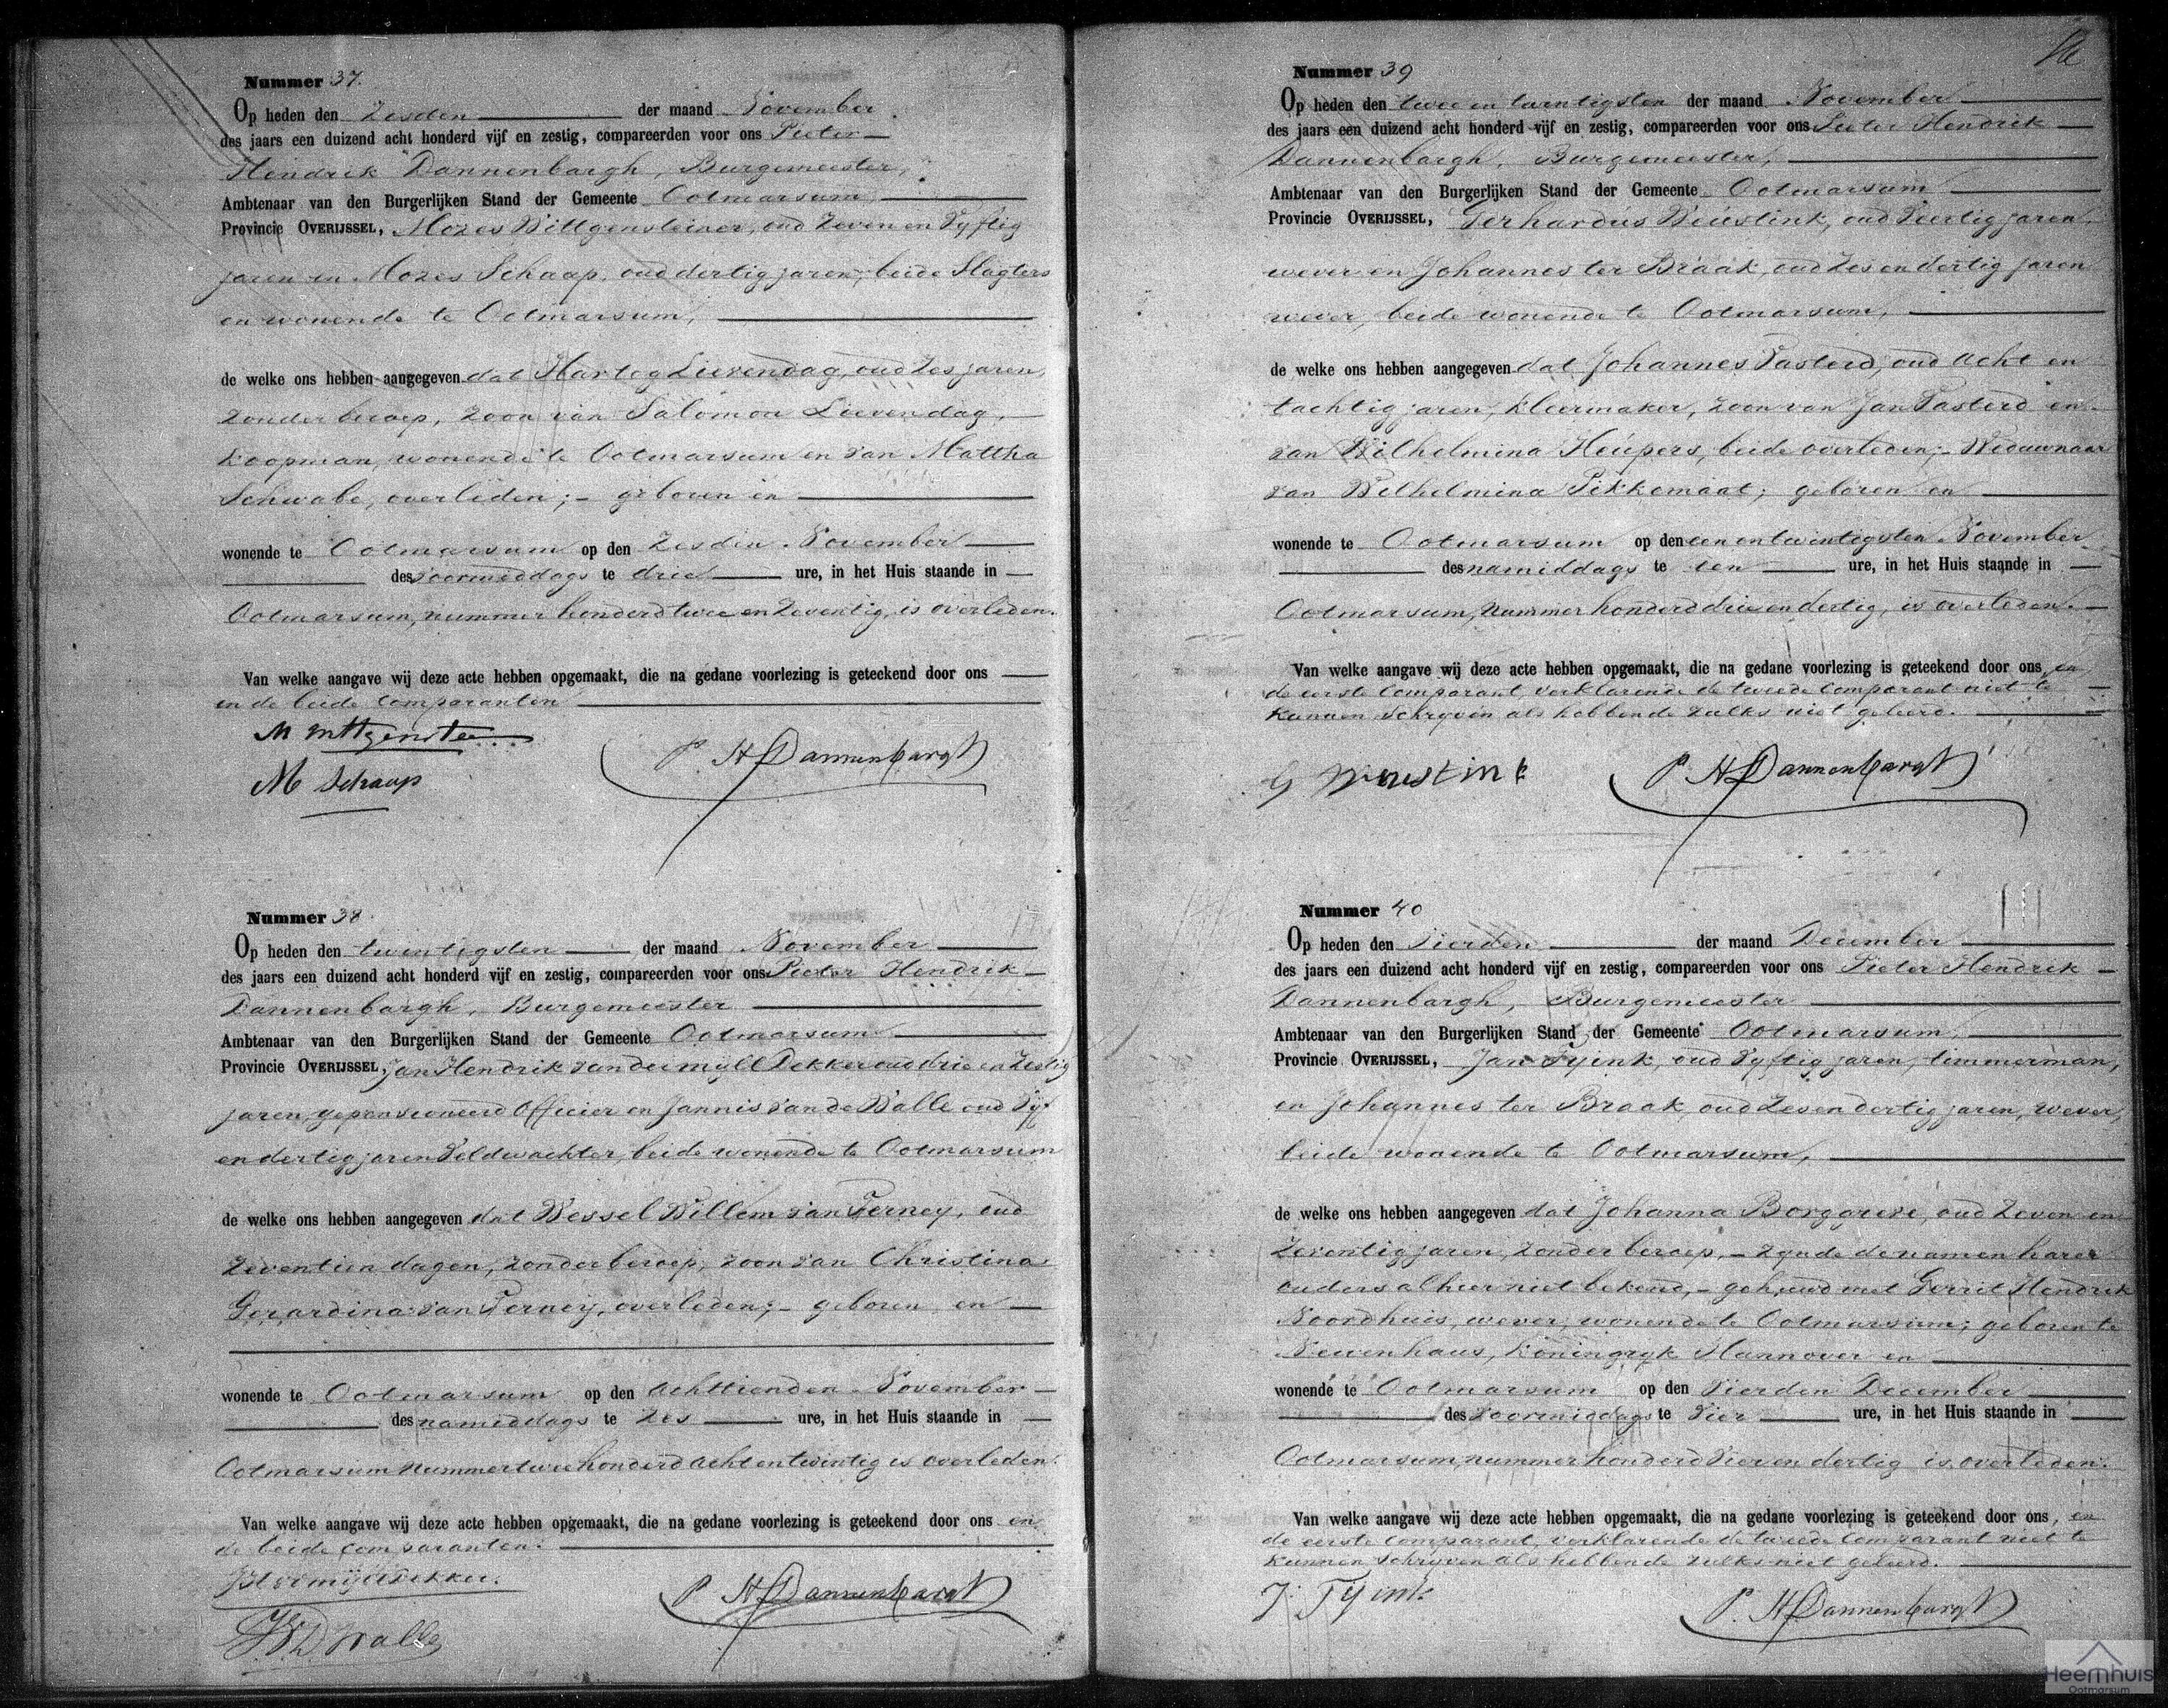 Nummer 37.
Op heden den Zesden der maand November
des jaars een duizend acht honderd vijf en zestig, compareerden voor ons Pieter
Hendrik Dannenbargh, Burgemeester,
Ambtenaar van den Burgerlijken Stand der Gemeente Ootmarsum,
Provincie OVERIJSSEL, Mozes Wittgensteiner, oud Zeven en Vyftig
jaren en Mozes Schaap, oud dertig jaren, beide Slagters
en wonende te Ootmarsum,
de welke ons hebben aangegeven dat Hartog Lievendag, oud Zes jaren,
zonder beroep, zoon van Salomon Lievendag,
koopman, wonende te Ootmarsum en van Mattha
Schwabe, overleden; - geboren en
wonende te Ootmarsum op den Zesden November
des voormiddags te drie ure, in het Huis staande in
Ootmarsum, nummer honderd twee en Zeventig, is overleden.
Van welke aangave wij deze acte hebben opgemaakt, die na gedane voorlezing is geteekend door ons
en de beide comparanten
M Schaap
P. H Dannenbargh
Nummer 38.
Op heden den twentigsten der maand November
des jaars een duizend acht honderd vijf en zestig, compareerden voor ons Pieter Hendrik
Dannenbargh, Burgemeester
Ambtenaar van den Burgerlijken Stand der Gemeente Ootmarsum
Provincie OVERIJSSEL, Jan Hendrik van der myll Dekker oud drie en Zestig
jaren, gepensioneerd Officier en Jannis van de Walle oud Vyf
en dertig jaren Veldwachter, beide wonende te Ootmarsum
de welke ons hebben aangegeven dat Wessel Willem van Ferney, oud
zeventien dagen, zonder beroep, zoon van Christina
Gerardina van Ferney, overleden; - geboren en
wonende te Ootmarsum op den achttienden November
des namiddags te zes ure, in het Huis staande in
Ootmarsum nummer twee honderd acht en twintig is overleden.
Van welke aangave wij deze acte hebben opgemaakt, die na gedane voorlezing is geteekend door ons en
de beide comparanten.
P. H Dannenbargh
Nummer 39
Op heden den twee en twintigsten der maand November
des jaars een duizend acht honderd vijf en zestig, compareerden voor ons Pieter Hendrik
Dannenbargh, Burgemeester,
Ambtenaar van den Burgerlijken Stand der Gemeente Ootmarsum
Provincie OVERIJSSEL, Gerhardus Weustink, oud Veertig jaren
wever en Johannes ter Braak, oud Zes en dertig jaren
wever, beide wonende te Ootmarsum,
de welke ons hebben aangegeven dat Johannes Pasterd, oud acht en
tachtig jaren, kleermaker, zoon van Jan Pasterd en
van Wilhelmina Heupers, beide overleden; - Weduwnaar
van Wilhelmina Pikkemaat; geboren en
wonende te Ootmarsum op den een en twintigsten November
des namiddags te een ure, in het Huis staande in
Ootmarsum, nummer honderd drie en dertig, is overleden.
Van welke aangave wij deze acte hebben opgemaakt, die na gedane voorlezing is geteekend door ons en
de eerste comparant, verklarende de tweede comparant niet te
kunnen schryven als hebbende zulks niet geleerd.
G Weustink
P. H Dannenbargh
Nummer 40
Op heden den Vierden der maand December
des jaars een duizend acht honderd vijf en zestig, compareerden voor ons Pieter Hendrik
Dannenbargh, Burgemeester
Ambtenaar van den Burgerlijken Stand der Gemeente Ootmarsum,
Provincie OVERIJSSEL, Jan Tyink, oud Vyftig jaren, timmerman,
en Johannes ter Braak, oud Zes en dertig jaren, wever,
beide wonende te Ootmarsum,
de welke ons hebben aangegeven dat Johanna Borggreve, oud Zeven en
Zeventig jaren, zonder beroep, - zynde de namen harer
ouders alhier niet bekend, - gehuwd met Gerrit Hendrik
Noordhuis, wever, wonende te Ootmarsum; geboren te
Neuenhaus, Koningryk Hannover en
wonende te Ootmarsum op den Vierden December
des voormiddags te Vier ure, in het Huis staande in
Ootmarsum, nummer honderd Vier en dertig is overleden.
Van welke aangave wij deze acte hebben opgemaakt, die na gedane voorlezing is geteekend door ons, en
de eerste comparant, verklarende de tweede comparant niet te
kunnen schryven als hebbende zulks niet geleerd.
J. Tyink
P. H Dannenbargh
Heemhuis
Ootmarsum